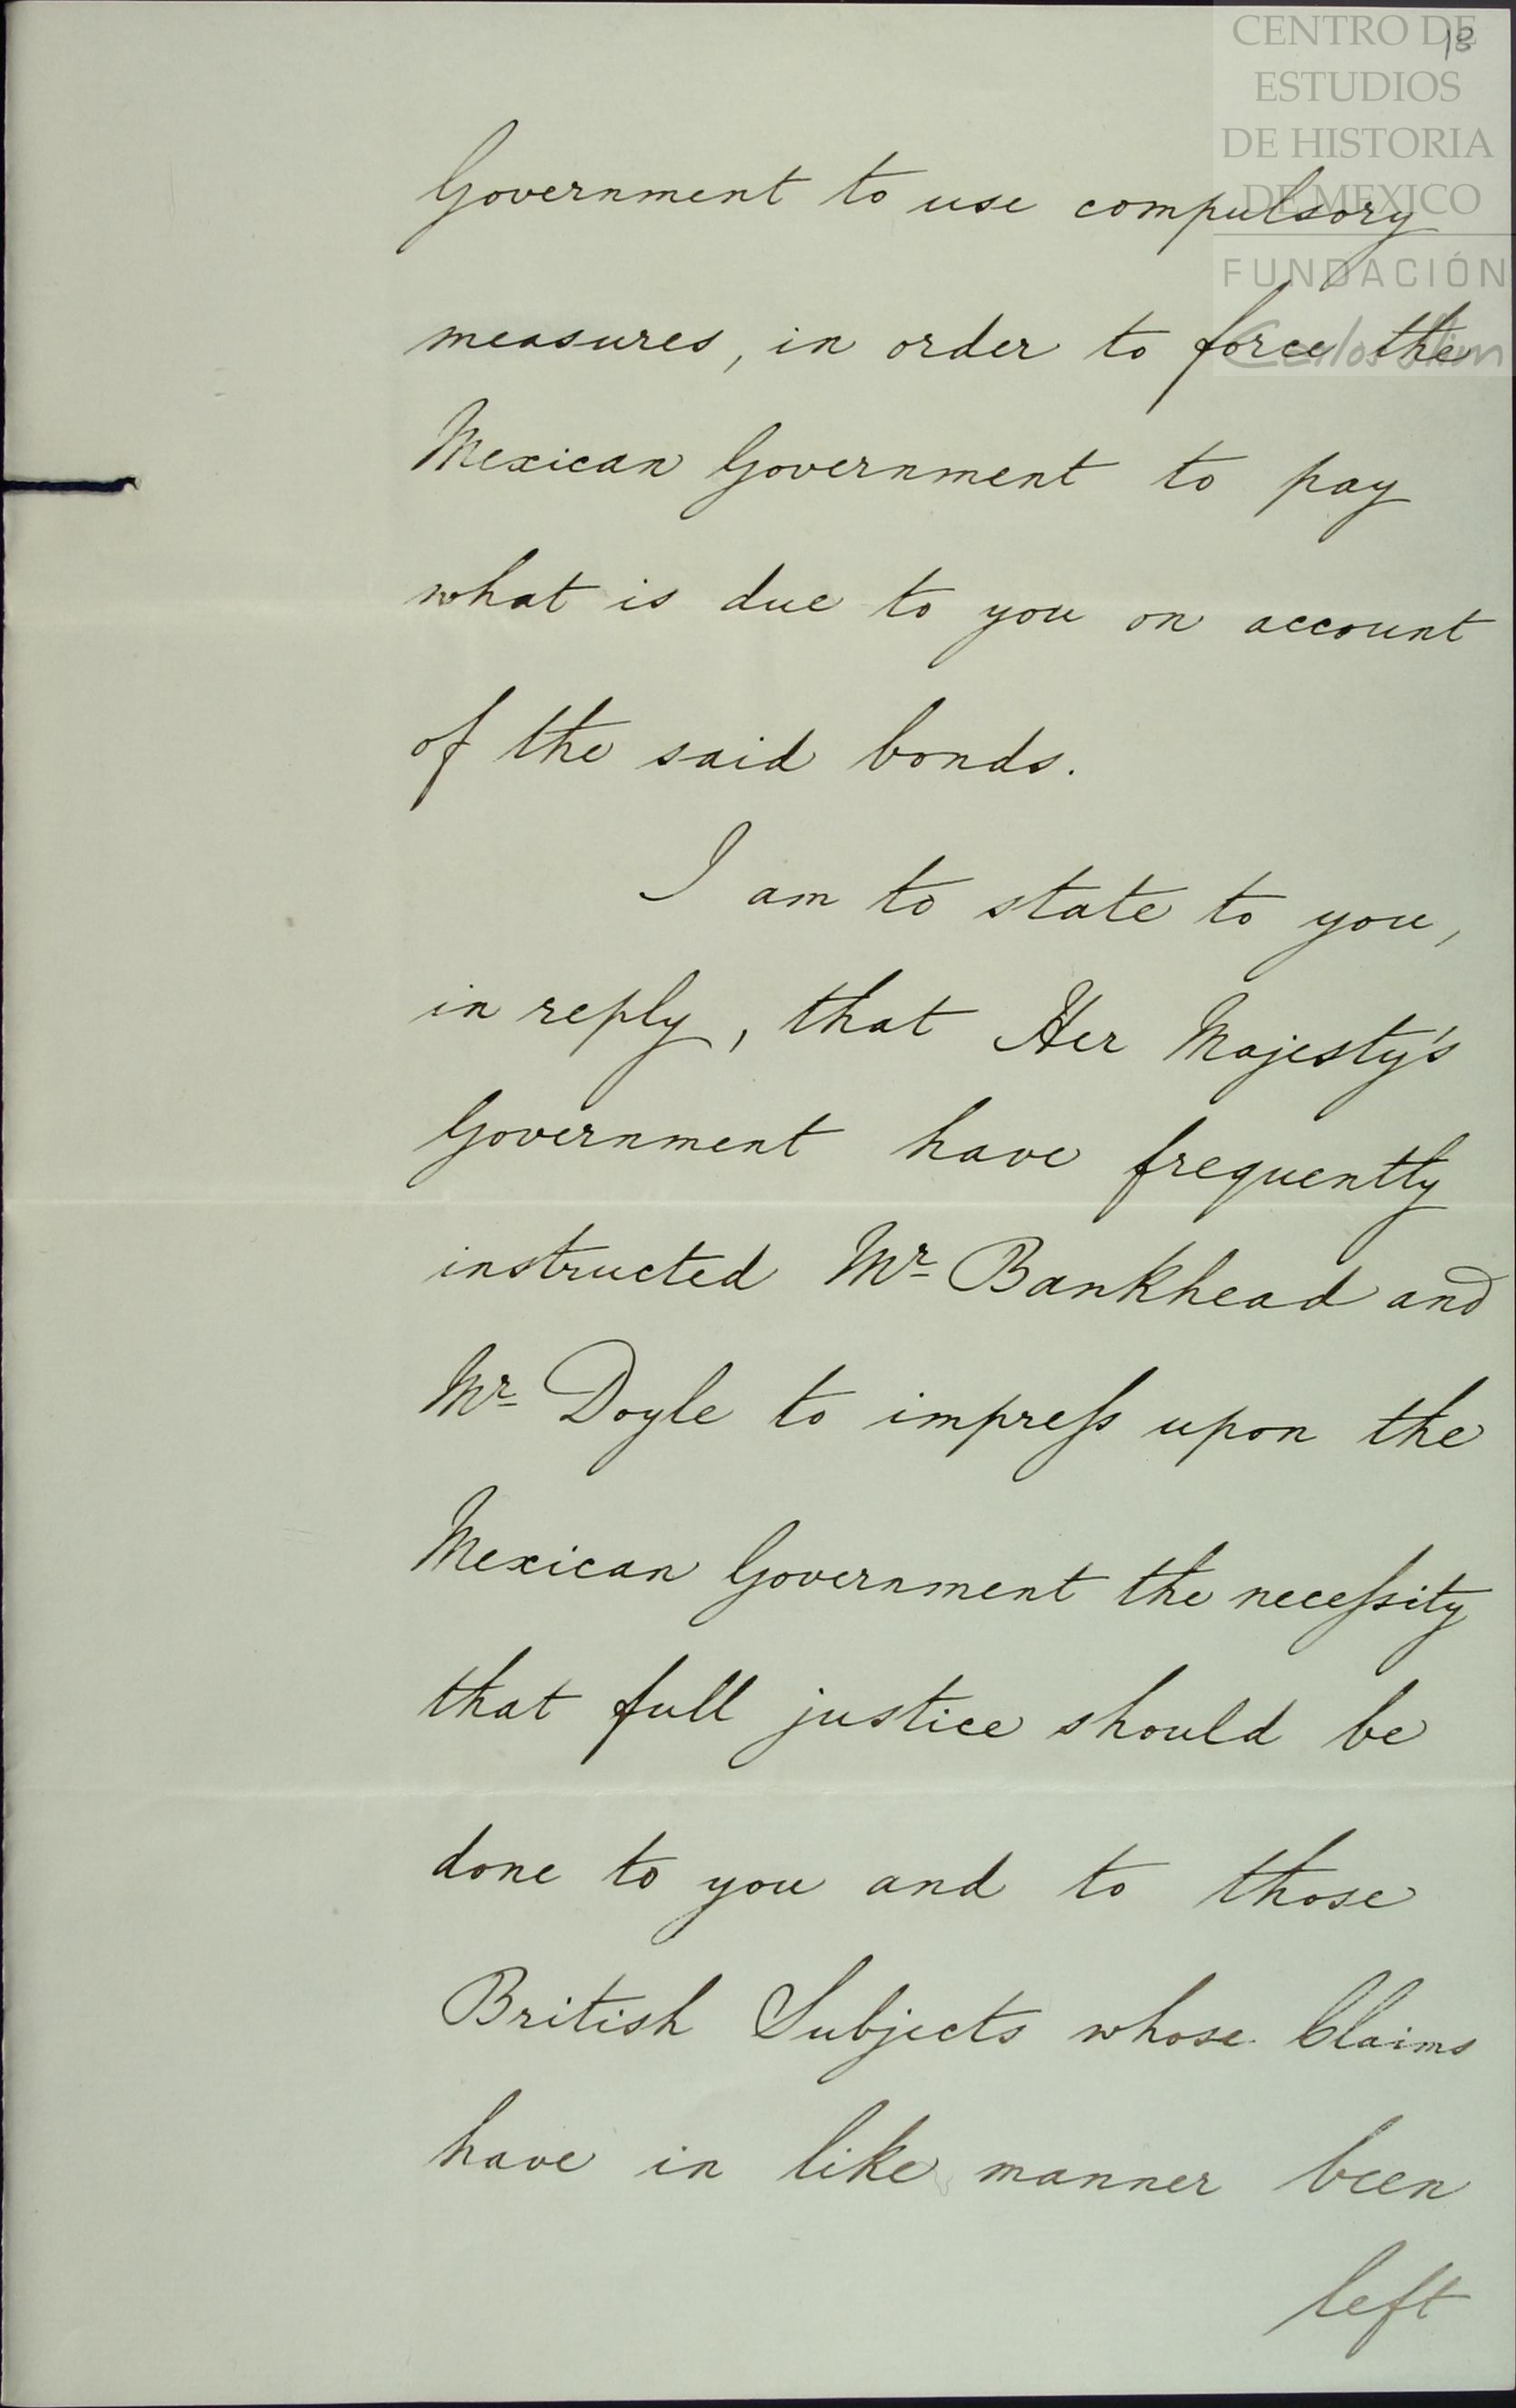 CENTRO DE
ESTUDIOS
DE HISTORIA
DE MEXICO
FUNDACIÓN
Carlos Slim
18
Government to use compulsory
measures, in order to force the
Mexican Government to pay
what is due to you on account
of the said bonds.
I am to state to you,
in reply, that Her Majesty's
Government have frequently
instructed Mr Bankhead and
Mr Doyle to impreſs upon the
Mexican Government the neceſsity
that full justice should be
done to you and to those
British Subjects whose Claims
have in like manner been
left